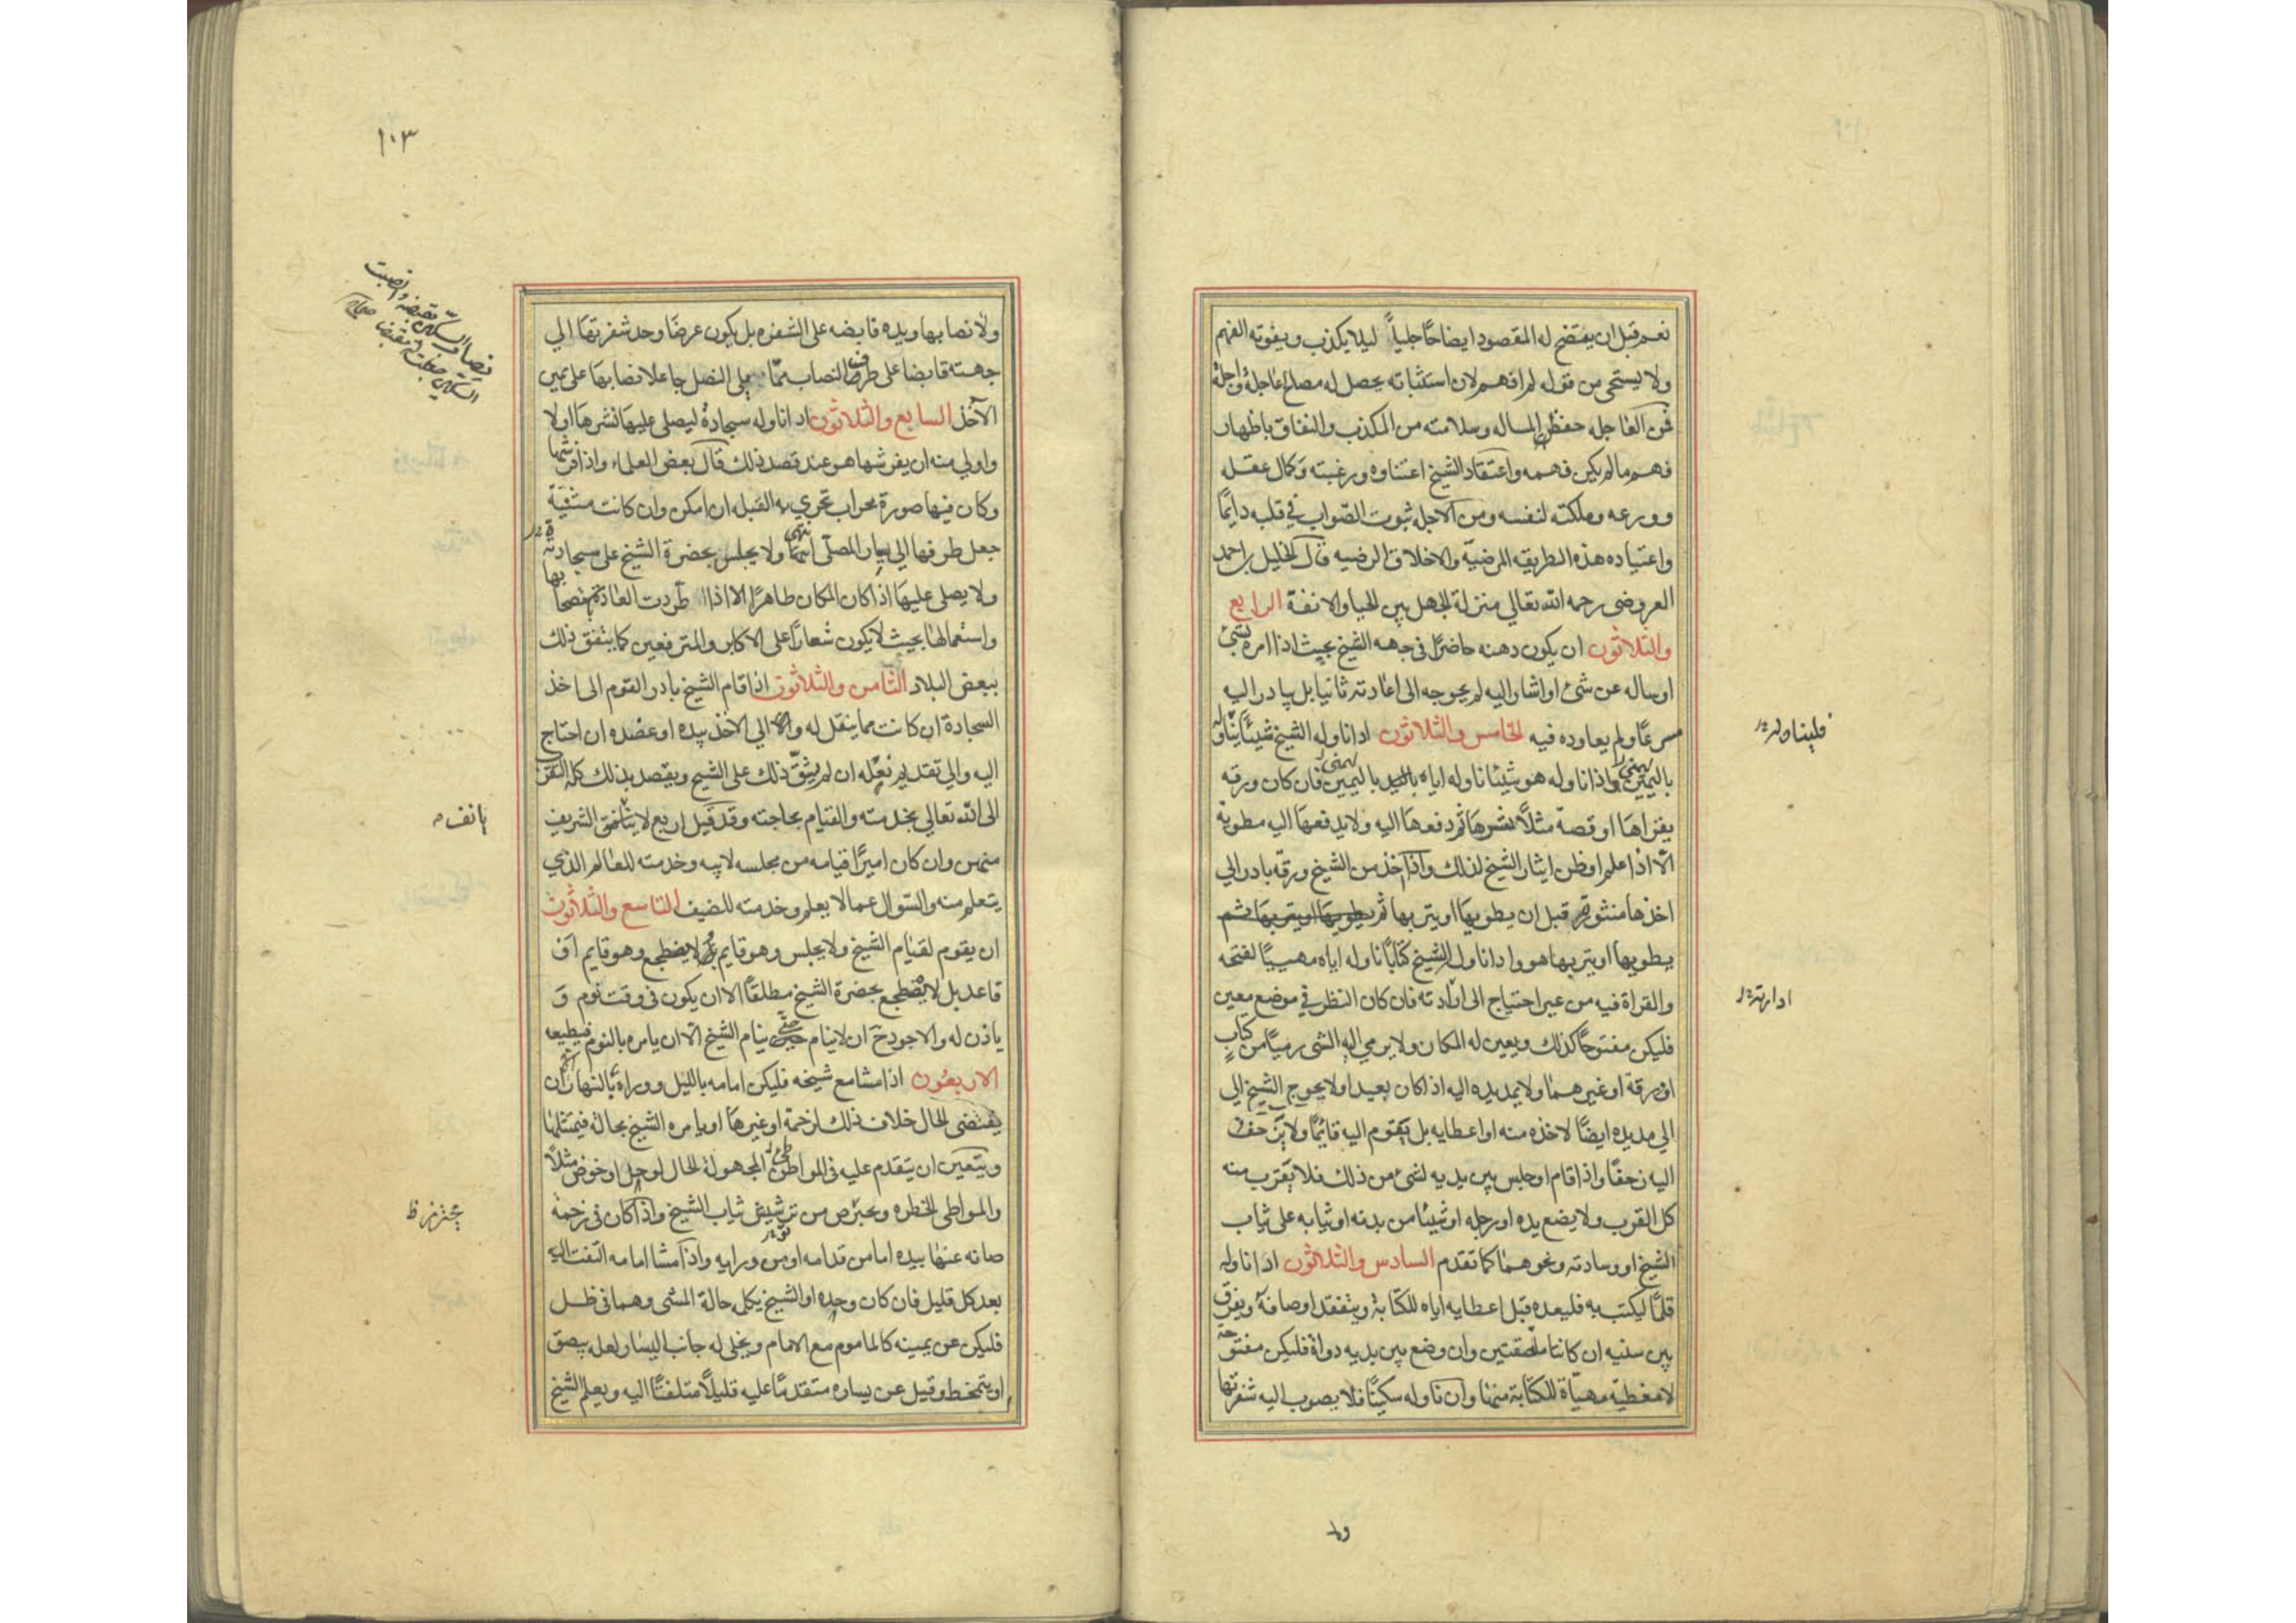 نعم قبل ان يتضح له المقصود ايضاحا جلياً ليلا يكذب ويفوته الفهم
ولا يستحى من قوله لم افهم لان استثباته يحصل له مصلح عاجلة واجلة
فمن العاجله حفظ المساله وسلامته من الكذب والنفاق باظهار
فهم ما لم يكن فهمه واعتقاد الشيخ اعتناوه ورغبته وكمال عقله
وورعه وملكته لنفسه ومن الاجله ثبوت الصواب في قلبه دايمًا
واعتياده هذه الطريقه المرضية والاخلاق الرضيه قال الخليل بن احمد
العروضى رحمه الله تعالى منزلة الجهل بين الحيا والانفة الرابع
والثلاثون ان يكون دهنه حاضرًا في جهه الشيخ بحيث اذا امره بشئ
او ساله عن شئ او اشار اليه لم يحوجه الى اعادته ثانيا بل يادر اليه
مسرعًا ولم يعاوده فيه الخامس والثلاثون ادا ناوله الشيخ شيئًا يتناوله
باليمين واذا ناوله هو شيئا ناوله اياه باليمين فان كان ورقه
يقراها او قصة مثلًا نشرها ثم دفعها اليه ولا يدفعها اليه مطوية
الا اذا علم او ظن ايثار الشيخ لذلك واذا اخذ من الشيخ ورقه بادر الى
اخذها منثورة قبل ان يطويها او يتربها ثم يطويها او يتربها ثم
يطويها او يتربها هو وادا ناول الشيخ كتابًا ناوله اياه مهيئًا لفتحه
والقراة فيه من غير احتياج الى ادارته فان كان النظر في موضع معين
فليكن مفتوحًا كذلك ويعين له المكان ولا يرمي اليه الشى رميًا من كتاب
او ورقة او غيرهما ولا يمد يده اليه اذا كان بعيدا ولا يحوج الشيخ الى
الى مد يده ايضًا لاخذه منه او اعطايه بل يقوم اليه قائمًا ولا يزحف
اليه زحفًا واذا قام او جلس بين يديه لشئ من ذلك فلا يقرب منه
كل القرب ولا يضع يده او رجله او شيئا من بدنه او ثيابه على ثياب
الشيخ او وسادته ونحوهما كما تقدم السادس والثلاثون ادا ناوله
قلمًا ليكتب به فليعده قبل اعطايه اياه للكتابة ويتفقد اوصافه ويفرق
بين سنيه ان كانتا ملصقتين وان وضع بين يديه دواة فليكن مفتوحة
لا مغطية مهياة للكتابة منها وان ناوله سكينًا فلا يصوب اليه شفرتها
فليتناوله
ادارته
ولا
١٠٣
ولا نصابها ويده قابضه على الشفره بل يكون عرضًا وحد شفرتها الى
جهته قابضا على طرف النصاب مما يلي النصل جاعلا نصابها على يمين
الآخذ السابع والثلاثون ادا ناوله سجادة ليصلى عليها نشرها اولا
واولى منه ان يفرشها هو عند قصد ذلك قال بعض العلماء واذا فرشها
وكان فيها صورة محراب تحرى به القبله ان امكن وان كانت مثنية
جعل طرفها الى يسار المصلى انتهى ولا يجلس بحضرة الشيخ على سجادته
ولا يصلى عليها اذا كان المكان طاهرًا الا اذا اطردت العادة
واستعمالها بحيث لا يكون شعارًا على الاكابر والمترفعين كما يتفق ذلك
ببعض البلاد الثامن والثلاثون اذا قام الشيخ بادر القوم الى اخذ
السجادة ان كانت مما ينقل له والا الى الاخذ بيده او عضده ان احتاج
اليه والى تقديم نعله ان لم يشق ذلك على الشيخ ويقصد بذلك كله التقرب
الى الله تعالى بخدمته والقيام بحاجته وقد قيل اربع لا يانف الشريف
منهن وان كان اميرًا قيامه من مجلسه لابيه وخدمته للعالم الذي
يتعلم منه والسؤال عما لا يعلم وخدمته للضيف التاسع والثلاثون
ان يقوم لقيام الشيخ ولا يجلس وهو قايم ولا يضطجع وهو قايم او
قاعد بل لا يضطجع بحضرة الشيخ مطلقًا الا ان يكون في وقت نوم و
ياذن له والاجود ان لا ينام حتى ينام الشيخ الا ان يامره بالنوم فيطيعه
الاربعون اذا مشا مع شيخه فليكن امامه بالليل ووراه بالنهار الا ان
يقتضى الحال خلاف ذلك لزحمة او غيرها او يامره الشيخ بحالة فيمتثلها
ويتعين ان يتقدم عليه في المواطئ المجهولة الحال لوحل او خوض مثلًا
والمواطى الخطره ويحترص من ترشيش ثياب الشيخ واذا كان في زحمة
صانه عنها بيده اما من قدامه او من ورايه واذا مشا امامه التفت اليه
بعد كل قليل فان كان وحده او الشيخ يكلم حالة المشى وهما في ظل
فليكن عن يمينه كالماموم مع الامام ويخلى له جانب اليسار لعله يبصق
او يتمخط وقيل عن يساره متقدمًا عليه قليلًا متلفتًا اليه ويعلم الشيخ
يانف
يحترز ظ